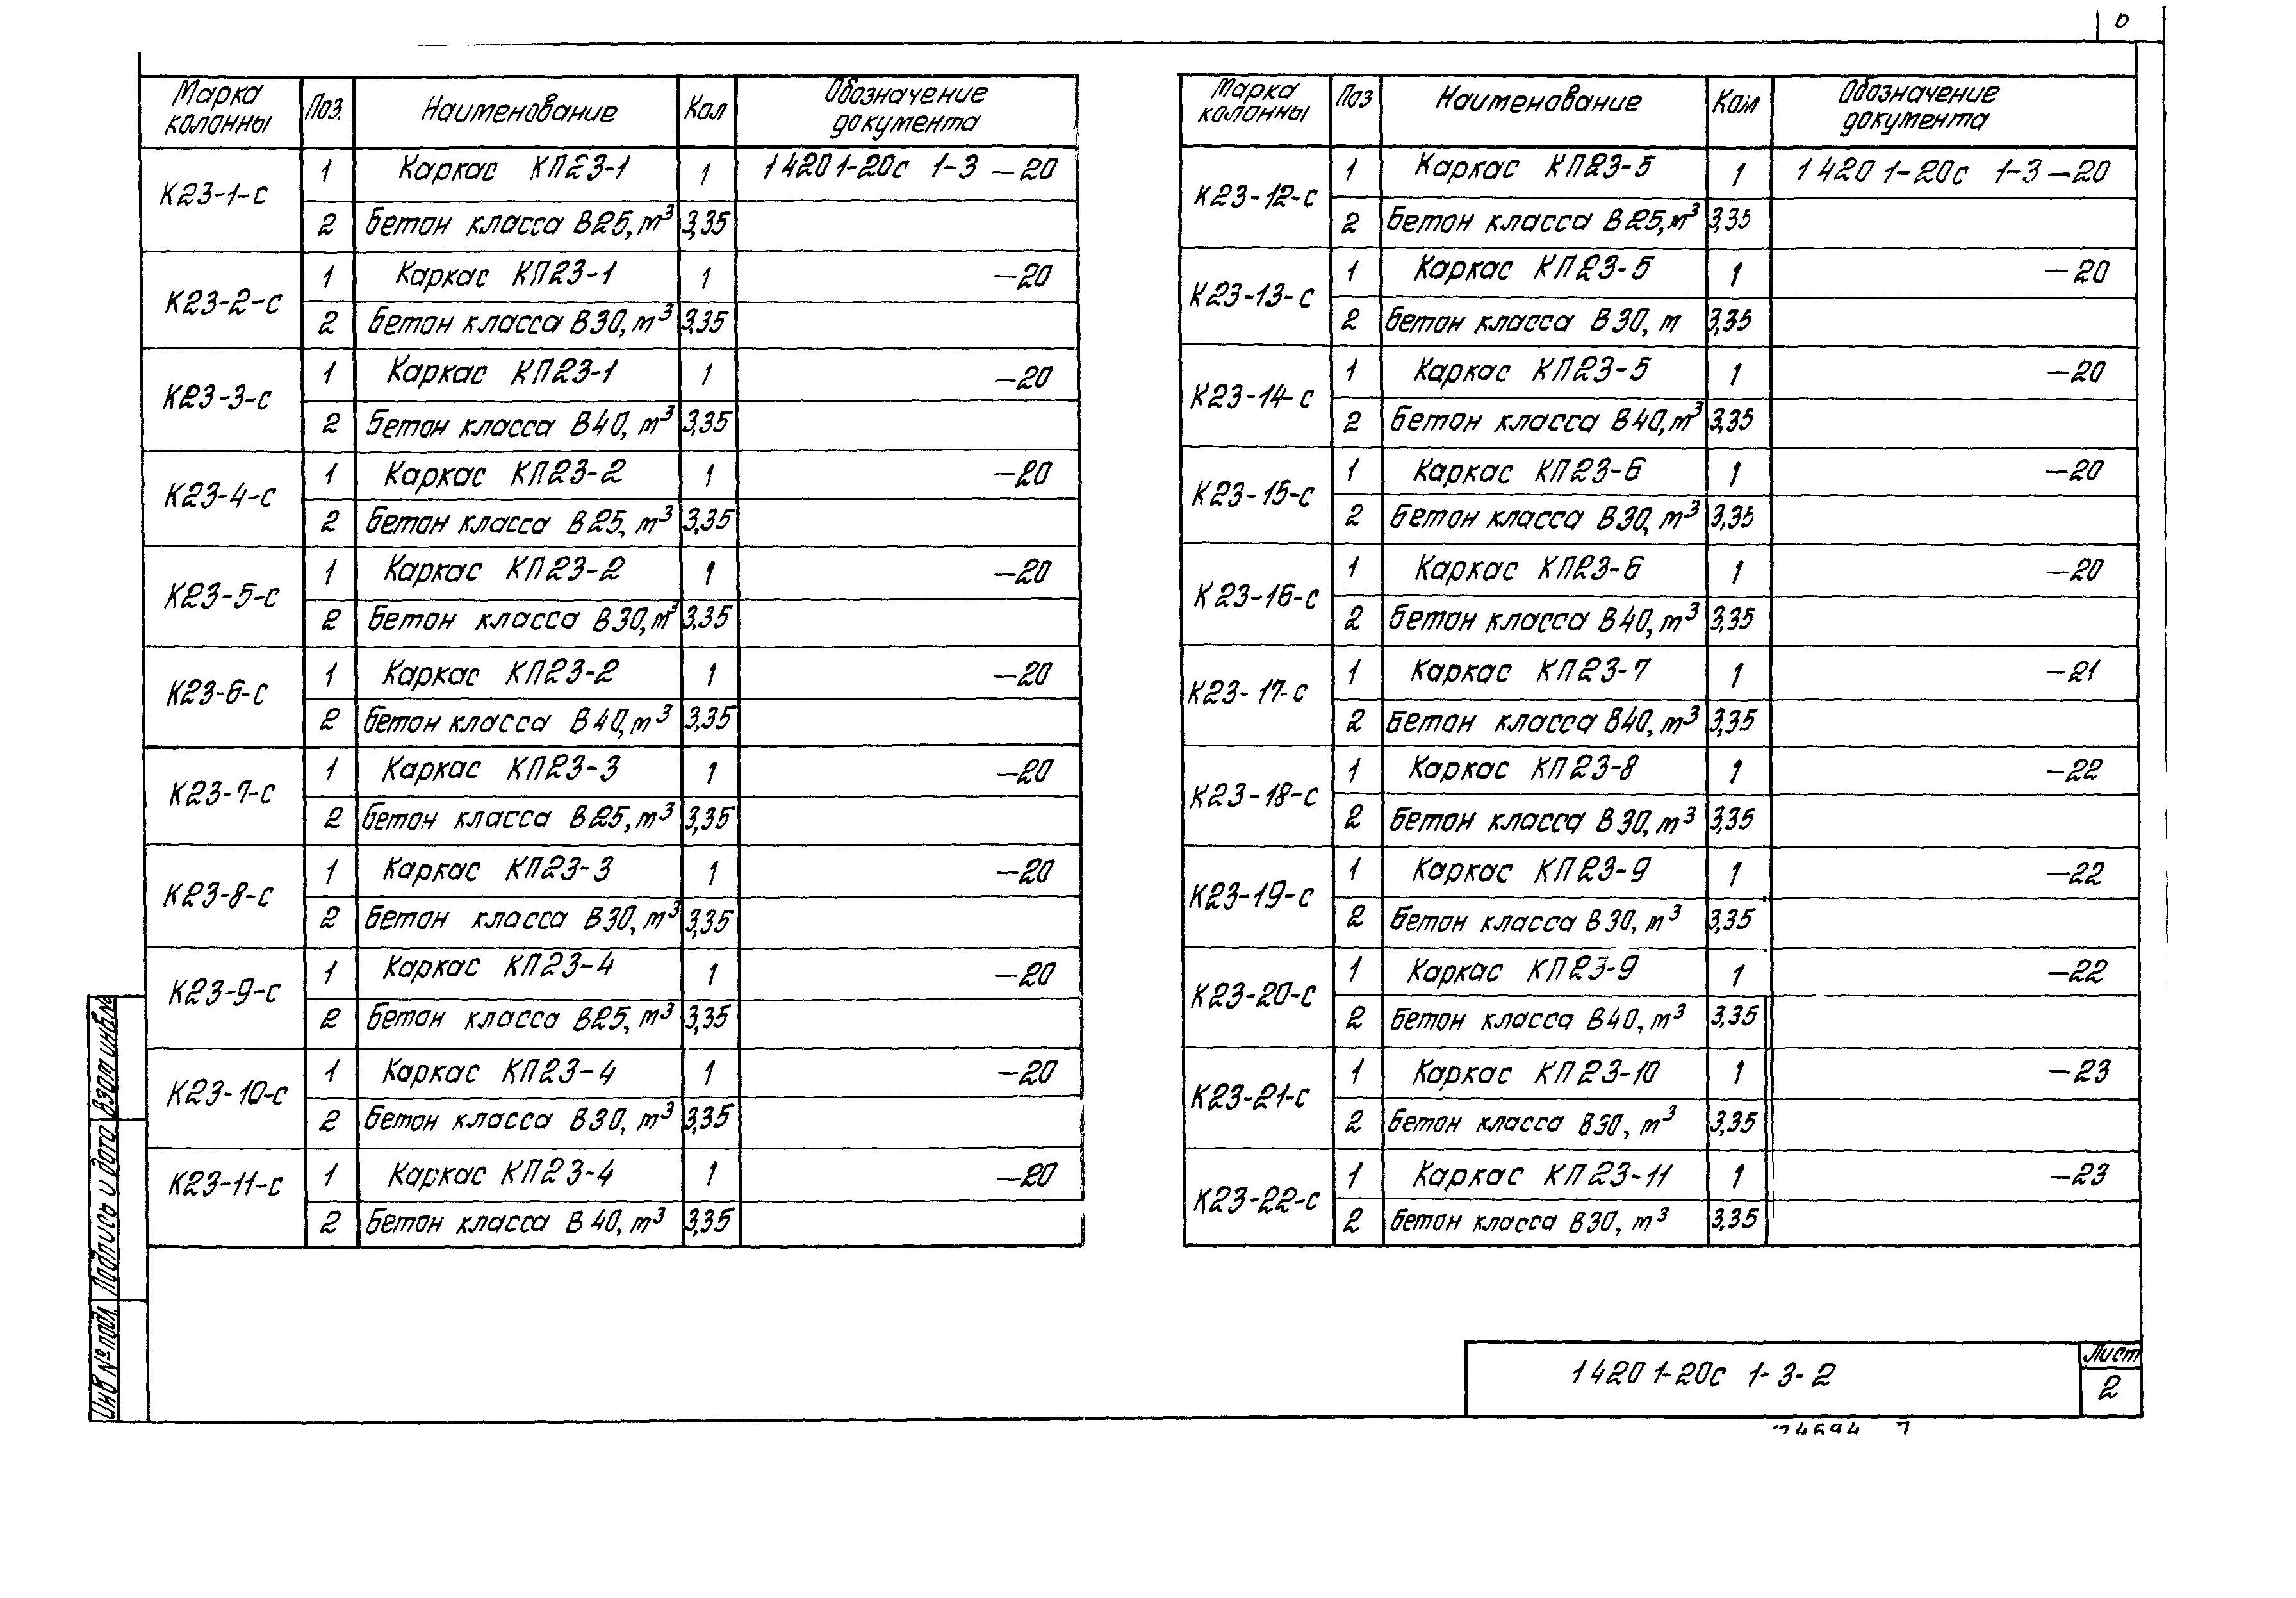 0
Марка колонны Поз. Наименование Кол Обозначение документа
К23-1-с 1 Каркас КП23-1 1 1 420 1-20с 1-3 -20
2 Бетон класса В25, м³ 3,35
К23-2-с 1 Каркас КП23-1 1 -20
2 Бетон класса В30, м³ 3,35
К23-3-с 1 Каркас КП23-1 1 -20
2 Бетон класса В40, м³ 3,35
К23-4-с 1 Каркас КП23-2 1 -20
2 Бетон класса В25, м³ 3,35
К23-5-с 1 Каркас КП23-2 1 -20
2 Бетон класса В30, м³ 3,35
К23-6-с 1 Каркас КП23-2 1 -20
2 Бетон класса В40, м³ 3,35
К23-7-с 1 Каркас КП23-3 1 -20
2 Бетон класса В25, м³ 3,35
К23-8-с 1 Каркас КП23-3 1 -20
2 Бетон класса В30, м³ 3,35
К23-9-с 1 Каркас КП23-4 1 -20
2 Бетон класса В25, м³ 3,35
К23-10-с 1 Каркас КП23-4 1 -20
2 Бетон класса В30, м³ 3,35
К23-11-с 1 Каркас КП23-4 1 -20
2 Бетон класса В40, м³ 3,35
Марка колонны Поз Наименование Кол Обозначение документа
К23-12-с 1 Каркас КП23-5 1 1 420 1-20с 1-3 -20
2 Бетон класса В25, м³ 3,35
К23-13-с 1 Каркас КП23-5 1 -20
2 Бетон класса В30, м 3,35
К23-14-с 1 Каркас КП23-5 1 -20
2 Бетон класса В40, м³ 3,35
К23-15-с 1 Каркас КП23-6 1 -20
2 Бетон класса В30, м³ 3,35
К23-16-с 1 Каркас КП23-6 1 -20
2 Бетон класса В40, м³ 3,35
К23-17-с 1 Каркас КП23-7 1 -21
2 Бетон класса В40, м³ 3,35
К23-18-с 1 Каркас КП23-8 1 -22
2 Бетон класса В30, м³ 3,35
К23-19-с 1 Каркас КП23-9 1 -22
2 Бетон класса В30, м³ 3,35
К23-20-с 1 Каркас КП23-9 1 -22
2 Бетон класса В40, м³ 3,35
К23-21-с 1 Каркас КП23-10 1 -23
2 Бетон класса В30, м³ 3,35
К23-22-с 1 Каркас КП23-11 1 -23
2 Бетон класса В30, м³ 3,35
Взам инв №
Подпись и дата
Инв № подл.
1 420 1-20с 1-3-2
Лист
2